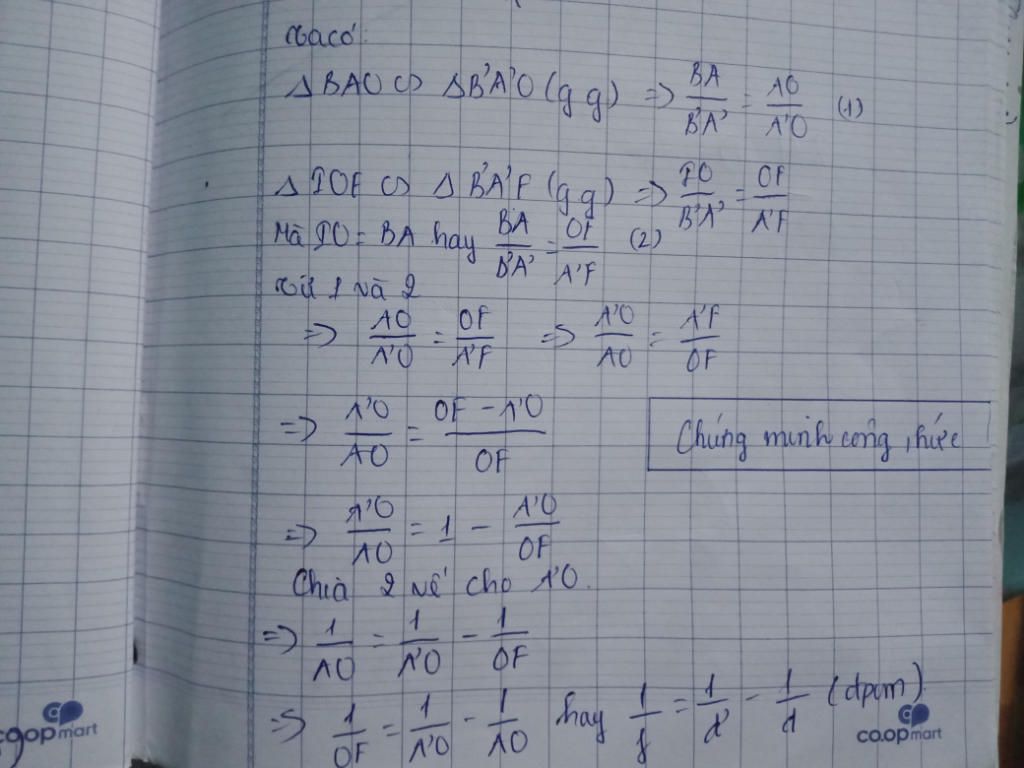 Ta có:
△BAO ∽ △B'A'O (g g) => BA/B'A' = AO/A'O (1)
△IOF ∽ △B'A'F (g g) => IO/B'A' = OF/A'F
Mà IO = BA hay BA/B'A' = OF/A'F (2)
Từ 1 và 2
=> AO/A'O = OF/A'F => A'O/AO = A'F/OF
=> A'O/AO = OF - A'O/OF
Chứng minh công thức
=> A'O/AO = 1 - A'O/OF
Chia 2 vế cho A'O.
=> 1/AO = 1/A'O - 1/OF
=> 1/OF = 1/A'O - 1/AO hay 1/f = 1/d' - 1/d (đpcm)
co.opmart
co.opmart